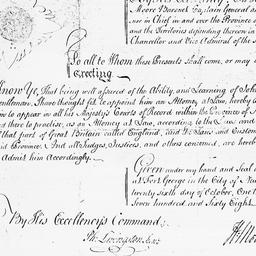 Moore Baronet Captain General a
nor in Chief in and over the Province o
and the Territories depending thereon in
Chancellor and Vice Admiral of the
To all to Whom these Presents Shall come, or may
Greeting.
Know Ye, That being well assured of the Ability and Learning of John
Gentleman, I have thought fit to appoint him an Attorney at Law, hereby
me to appear in all his Majesty's Courts of Record within the Province of
and there to practise, as an Attorney at Law, according to the Laws and
that part of Great Britain called England, and the Laws and Customs
said Province. And all Judges, Justices, and others concerned, are hereb
Admit him Accordingly.
Given under my hand and Seal
at Fort George in the City of New
twenty sixth day of October, One t
Seven hundred and Sixty Eight
By His Excellency's Command
Ph. Livingston
H Mo